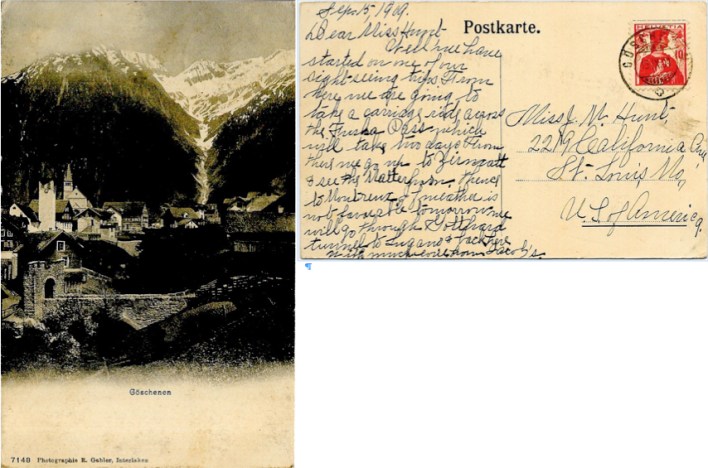 Göschenen
7140 Photographie R. Gabler, Interlaken
Postkarte.
Sept 5, 1909.
Dear Miss Hunt
Well we have
started on one of our
sight-seeing trips. From
here we are going to
take a carriage ride across
the Furka Pass which
will take two days from
there we go up to Zermatt
& see the Matterhorn, thence
to Montreux if weather is
not favorable tomorrow we
will go through Gotthard
tunnel to Lugano & back here
With much love from
HELVETIA
10
Miss J. M. Hunt,
2219 California Ave
St. Louis Mo,
U.S. of America